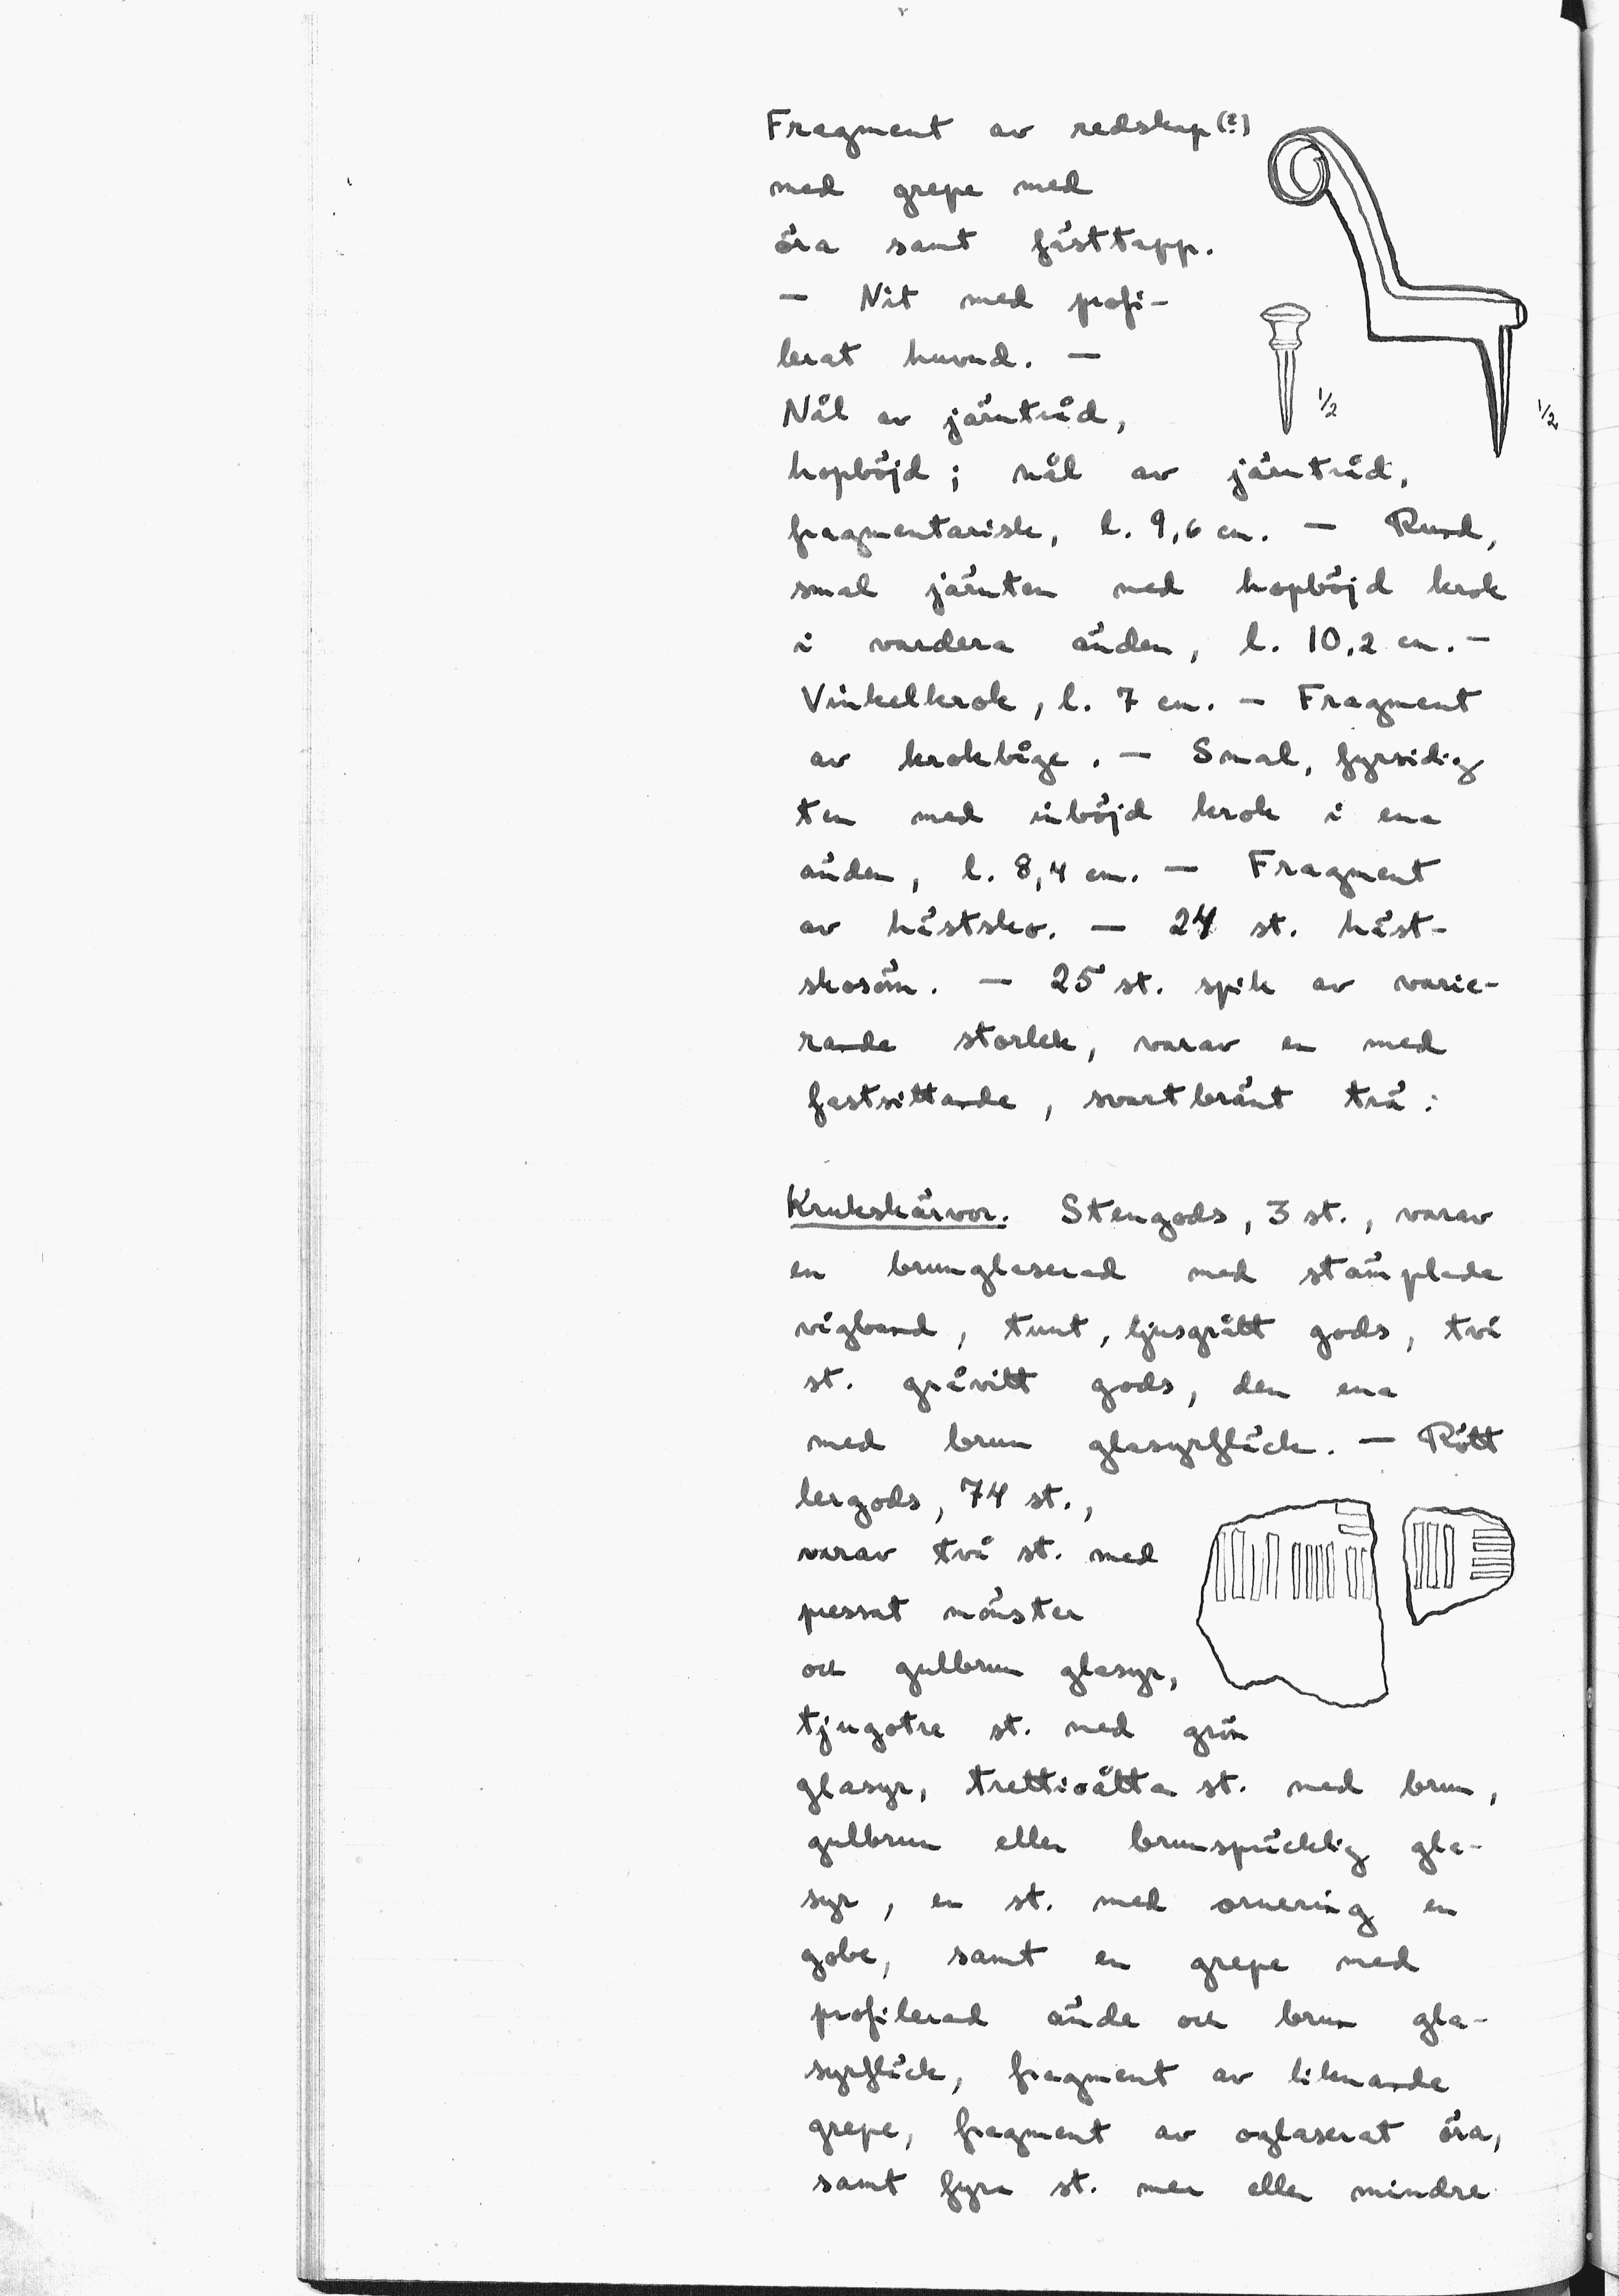 Fragment av redskap (?)
med grepe med
öra samt fästtapp.
— Nit med profi-
lerat huvud. —
Nål av järntråd,
1/2
1/2
hopböjd; nål av järntråd,
fragmentarisk, l. 9,6 cm. — Rund,
smal järnten med hopböjd krok
i vardera änden, l. 10,2 cm. —
Vinkelkrok, l. 7 cm. — Fragment
av krokbåge. — Smal, fyrsidig
ten med inböjd krok i ena
änden, l. 8,4 cm. — Fragment
av hästsko. — 24 st. häst-
skosöm. — 25 st. spik av varie-
rande storlek, varav en med
fastsittande, svartbränt trä.
Krukskärvor. Stengods, 3 st., varav
en brunglaserad med stämplade
vågband, tunt, ljusgrått gods, två
st. gråvitt gods, den ena
med brun glasyrfläck. — Rött
lergods, 74 st.,
varav två st. med
pressat mönster
och gulbrun glasyr,
tjugotre st. med grön
glasyr, trettioåtta st. med brun,
gulbrun eller brunspräcklig gla-
syr, en st. med ornering en
gobe, samt en grepe med
profilerad ände och brun gla-
syrfläck, fragment av liknande
grepe, fragment av oglaserat öra,
samt fyra st. mer eller mindre